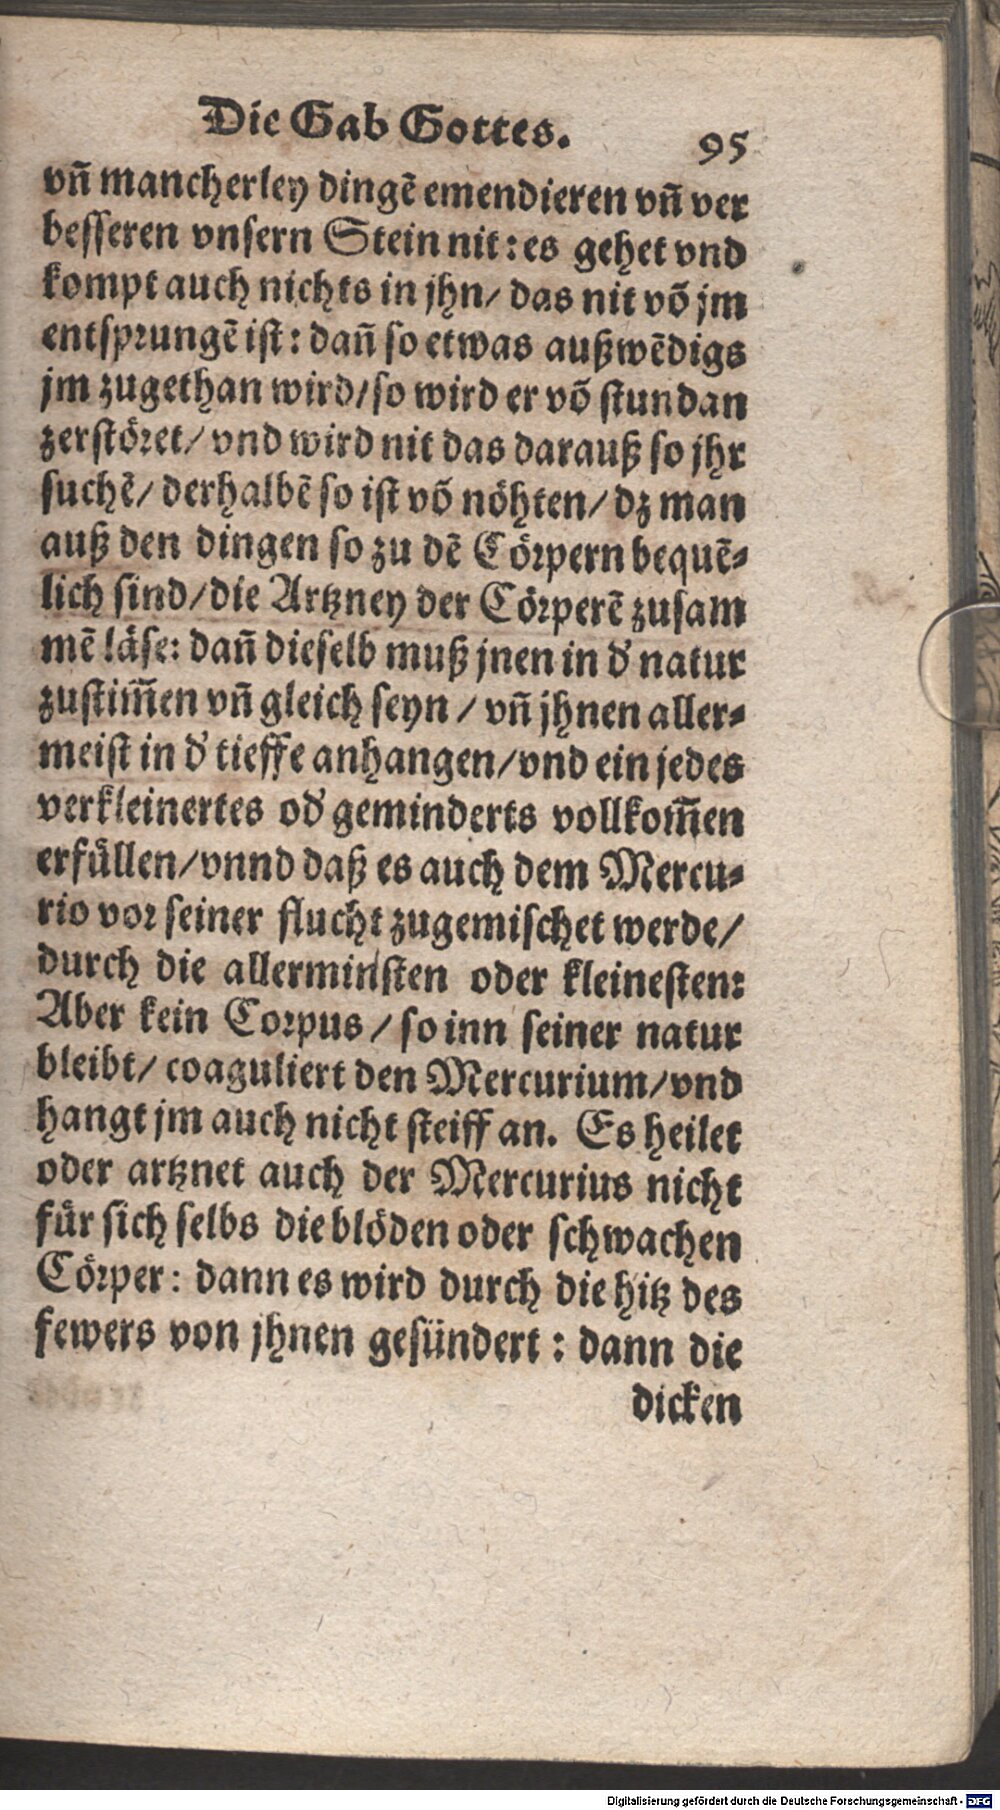 Die Gab Gottes. 95
vñ mancherley dingē emendieren vñ ver
besseren vnsern Stein nit: es gehet vnd
kompt auch nichts in jhn/ das nit võ jm
entsprungē ist: dañ so etwas außwēdigs
jm zugethan wird/ so wird er võ stundan
zerstöret/ vnd wird nit das darauß so jhr
suchē/ derhalbē so ist võ nöhten/ dz man
auß den dingen so zu dē Cörpern bequē-
lich sind/ die Artzney der Cörperē zusam
mē läse: dañ dieselb muß jnen in d' natur
zustim̃en vñ gleich seyn / vñ jhnen aller-
meist in d' tieffe anhangen/ vnd ein jedes
verkleinertes od' geminderts vollkom̃en
erfüllen/ vnnd daß es auch dem Mercu-
rio vor seiner flucht zugemischet werde/
durch die allerminsten oder kleinesten:
Aber kein Corpus / so inn seiner natur
bleibt/ coaguliert den Mercurium/ vnd
hangt jm auch nicht steiff an. Es heilet
oder artznet auch der Mercurius nicht
für sich selbs die blöden oder schwachen
Cörper: dann es wird durch die hitz des
fewers von jhnen gesündert : dann die
dicken
Digitalisierung gefördert durch die Deutsche Forschungsgemeinschaft - DFG